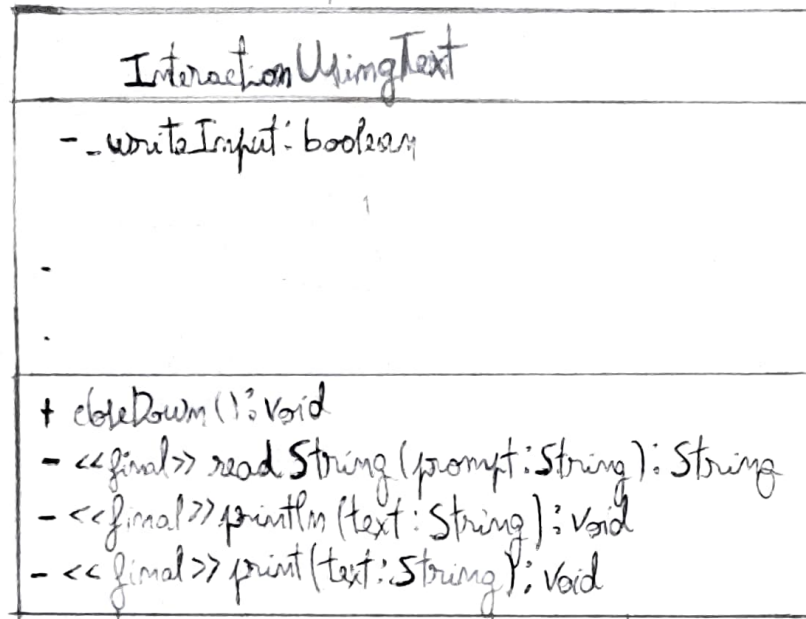 InteractionUsingText
- _writeInput: boolean
-
.
+ closeDown(): void
- <<final>> readString(prompt: String): String
- <<final>> println(text: String): void
- <<final>> print(text: String): void